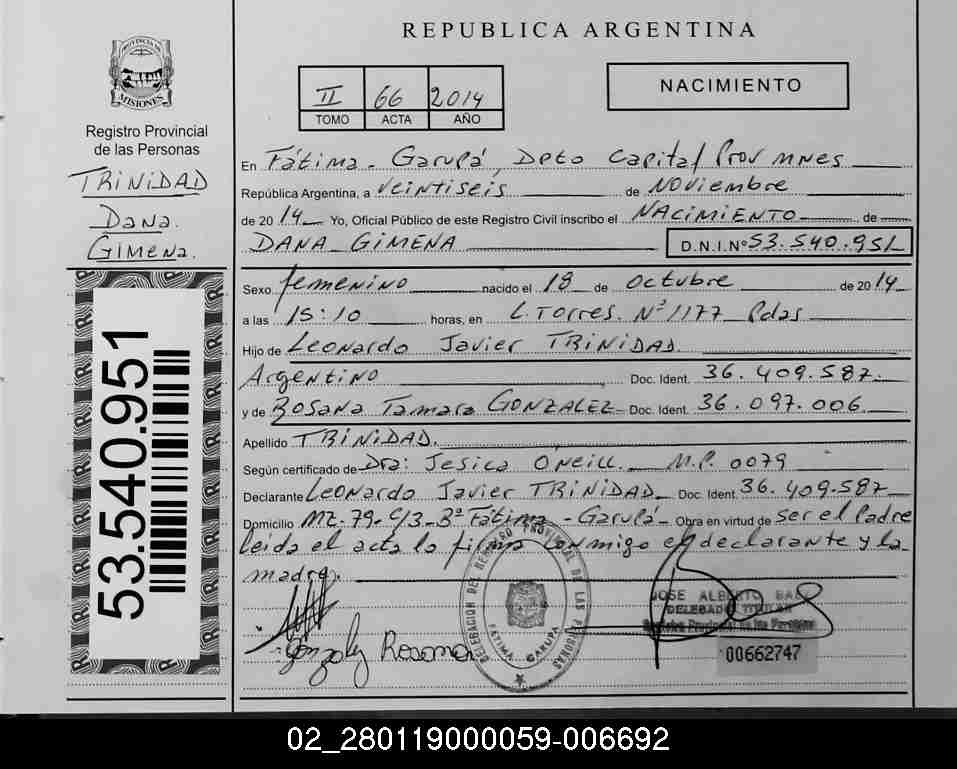 REPUBLICA ARGENTINA
PROVINCIA DE
MISIONES
Registro Provincial
de las Personas
TRINIDAD
Dana.
GIMENa.
53.540.951
II 66 2014
TOMO ACTA AÑO
NACIMIENTO
En Fátima - Garupá, Dpto Capital Prov MNES
República Argentina, a veintiseis de Noviembre
de 2014 Yo, Oficial Público de este Registro Civil inscribo el NACIMIENTO de
DANA GIMENA D.N.I.Nº 53.540.951
Sexo femenino nacido el 18 de octubre de 2014
a las 15:10 horas, en L. Torres. Nº 1177 Pdas
Hijo de Leonardo Javier TRINIDAD.
Argentino Doc. Ident. 36.409.587.
y de Rosana Tamara GONZALEZ Doc. Ident. 36.097.006.
Apellido TRINIDAD.
Según certificado de Dra: Jesica O'neill. M.P. 0079
Declarante Leonardo Javier TRINIDAD Doc. Ident. 36.409.587
Domicilio MZ-79-C/3-Bº Fátima - Garupá - Obra en virtud de ser el Padre
leída el acta la firma conmigo el declarante y la
madre.
DELEGACION DEL REGISTRO PROVINCIAL DE LAS PERSONAS
FATIMA GARUPA
JOSE ALBERTO
DELEGADO TITULAR
Registro Provincial de las Personas
00662747
02_280119000059-006692